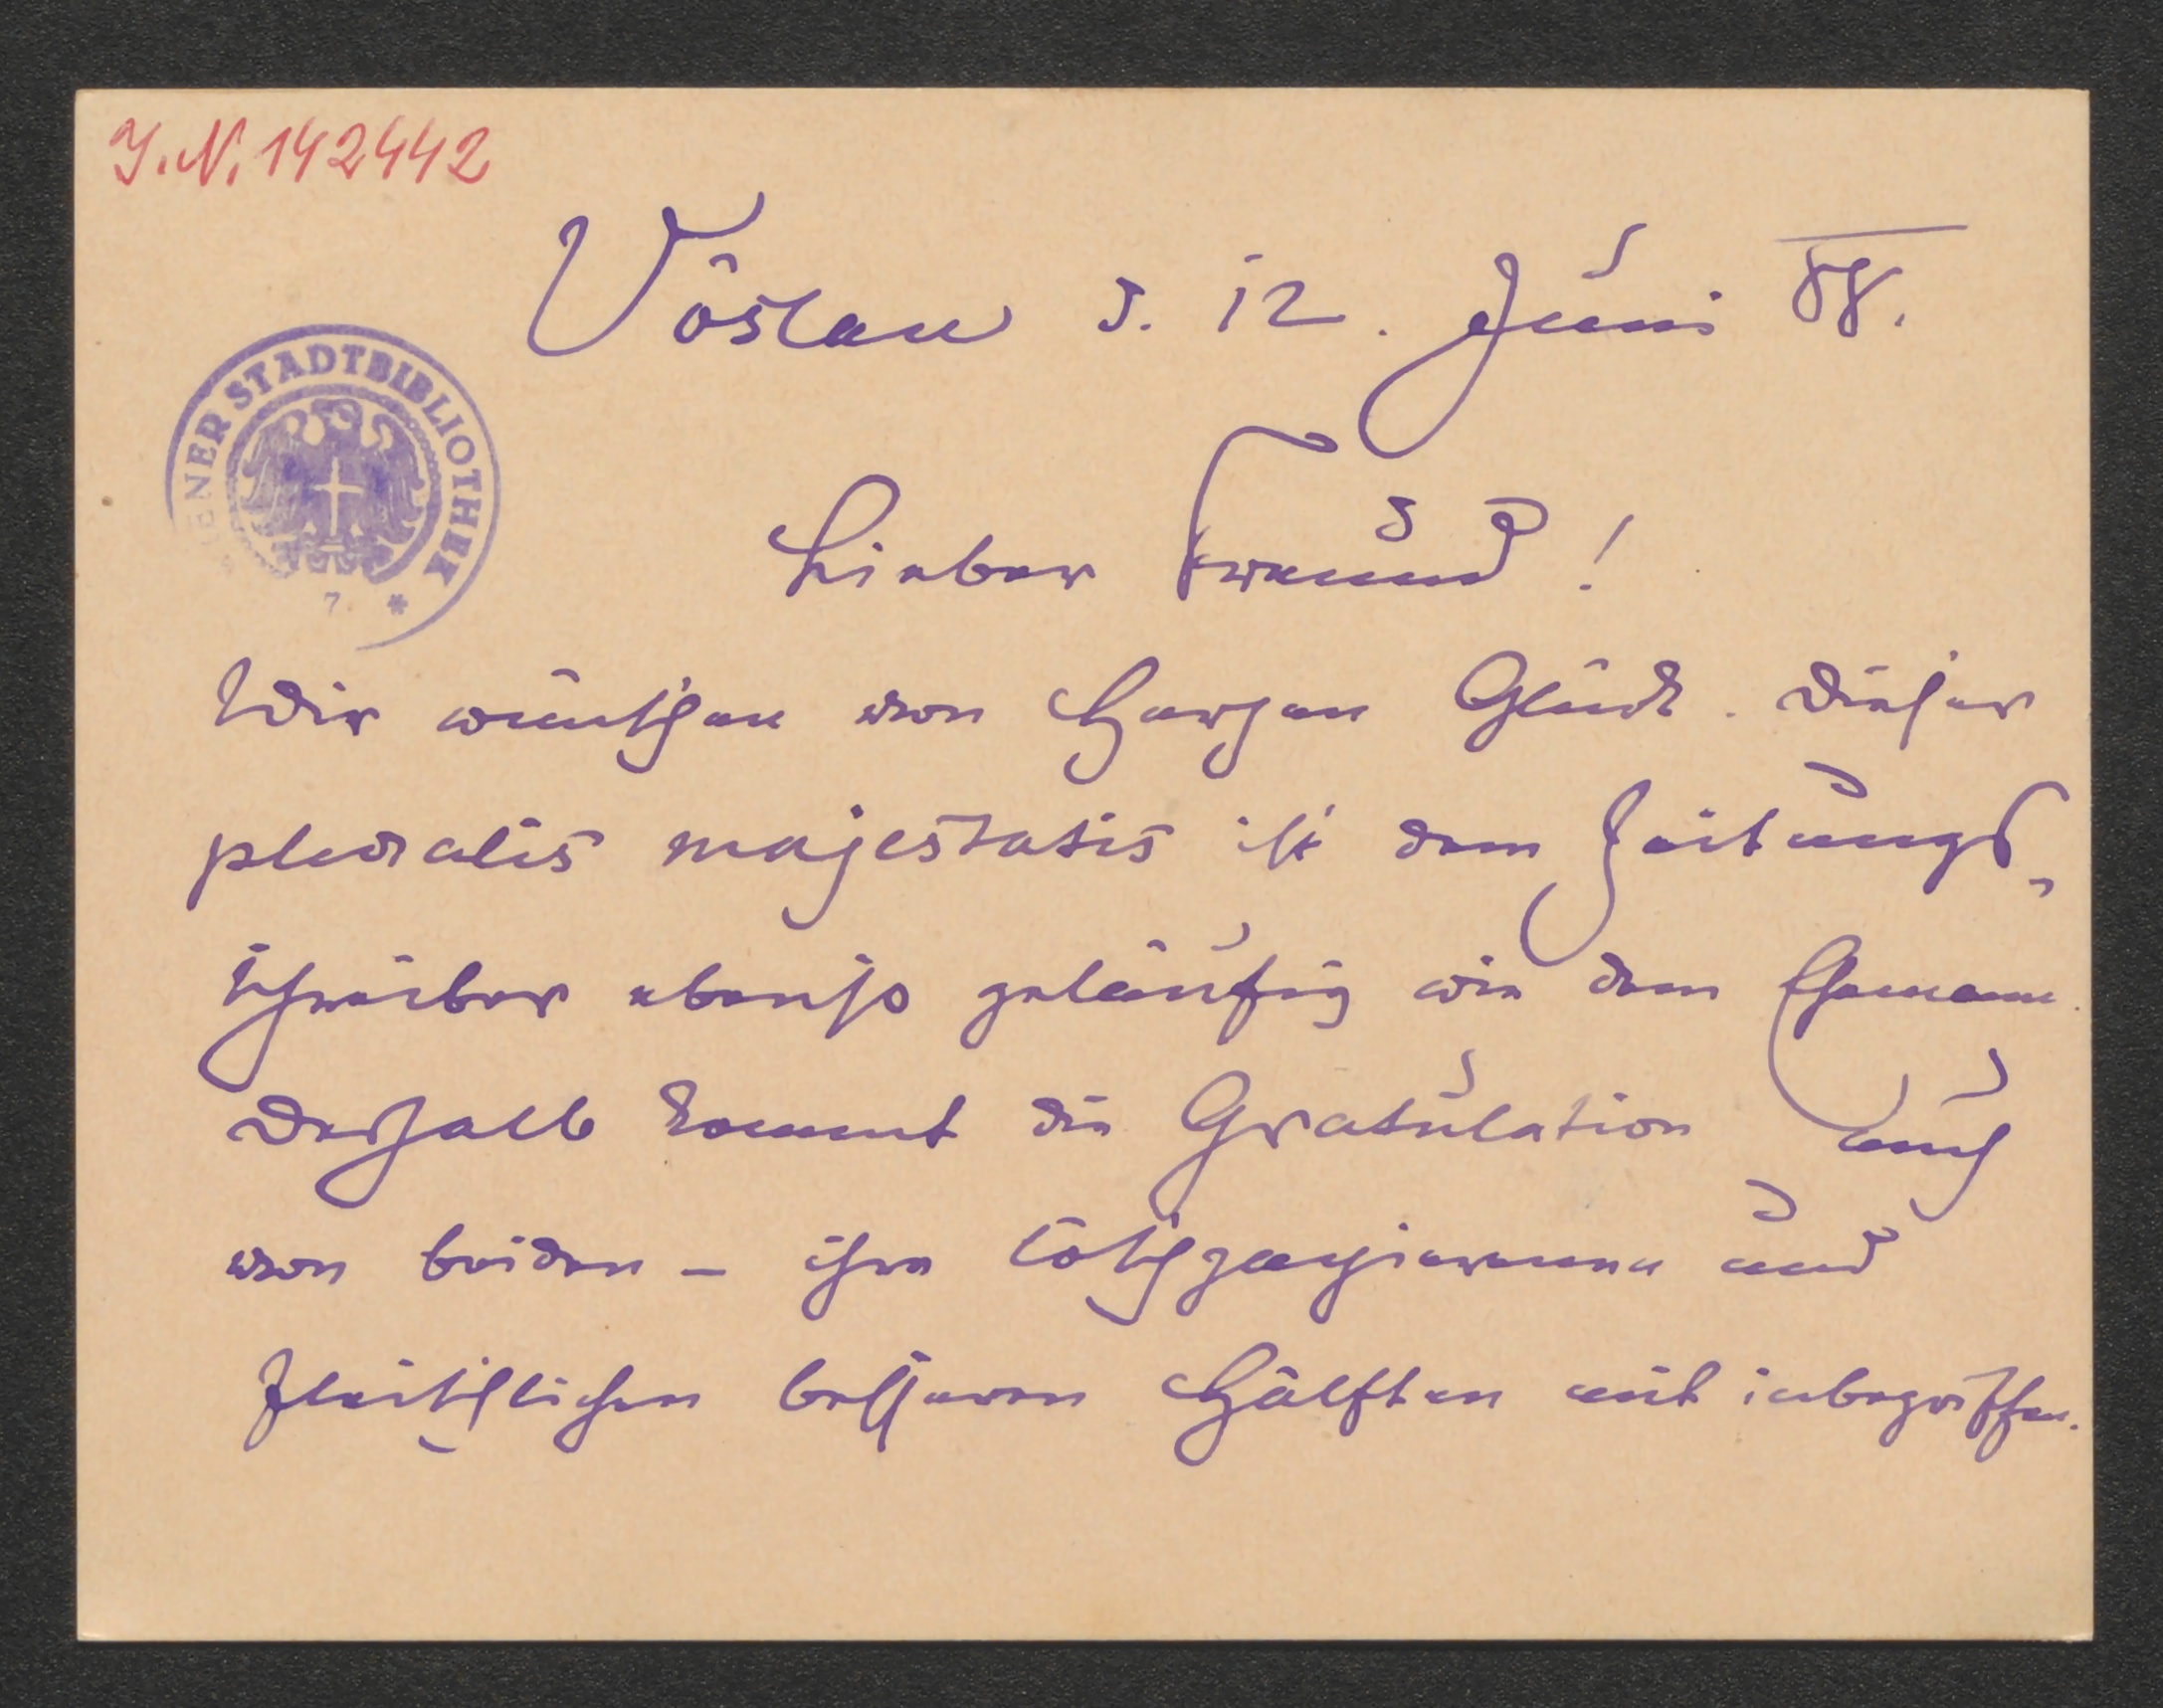 I.N. 142442
Vöslau d. 12. Juni 88.
WIENER STADTBIBLIOTHEK *
Lieber Freund!
Wir wünschen von Herzen Glück. Dieser
pluralis majestatis ist dem Zeitungs-
schreiber ebenso geläufig wie dem Ehemann.
Deshalb kommt die Gratulation auch
von beiden – ihre und
fleischlichen besseren Hälften mit inbegriffen.